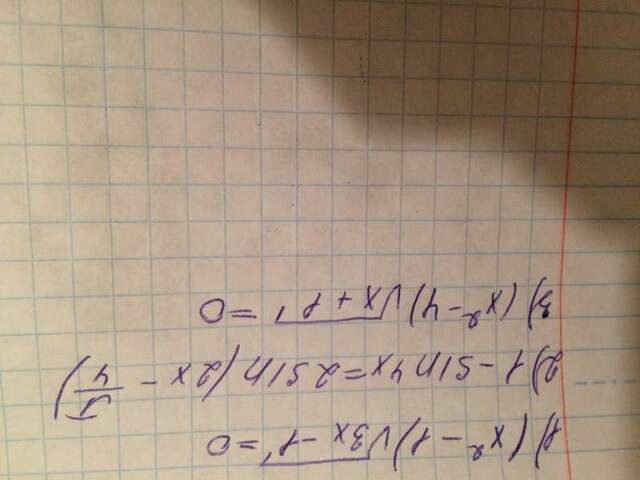 1) (x² - 1) √3x - 1 = 0
2) 1 - sin 4x = 2 sin (2x - π/4)
3) (x² - 4) √x + 1 = 0